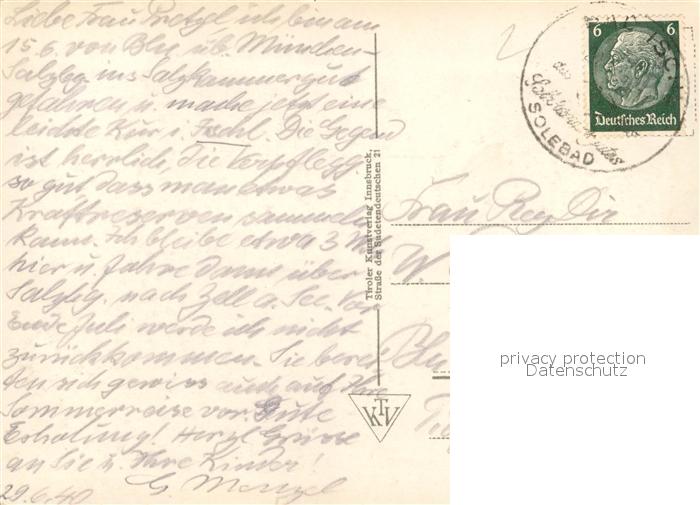 Liebe Frau Pretzl ich bin am
15.6. von Bln üb. München-
Salzbg. ins Salzkammergut
gefahren u. mache jetzt eine
leichte Kur i. Ischl. Die Gegend
ist herrlich, die Verpflegg.
so gut dass man etwas
Kraftreserven sammeln
kann. Ich bleibe etwa 3
hier u. fahre dann über
Salzbg. nach Zell a. See. Vor
Ende Juli werde ich nicht
zurückkommen. Sie berei-
ten sich gewiss auch auf Ihre
Sommerreise vor. Gute
Erholung! Herzl. Grüsse
an Sie u. Ihre Kinder!
29.6.40
Tiroler Kunstverlag Innsbruck,
Straße der Sudetendeutschen 21
KTV
6 6
Deutsches Reich
BAD ISCHL
SOLEBAD
Frau Reg Dir
W.
privacy protection
Datenschutz